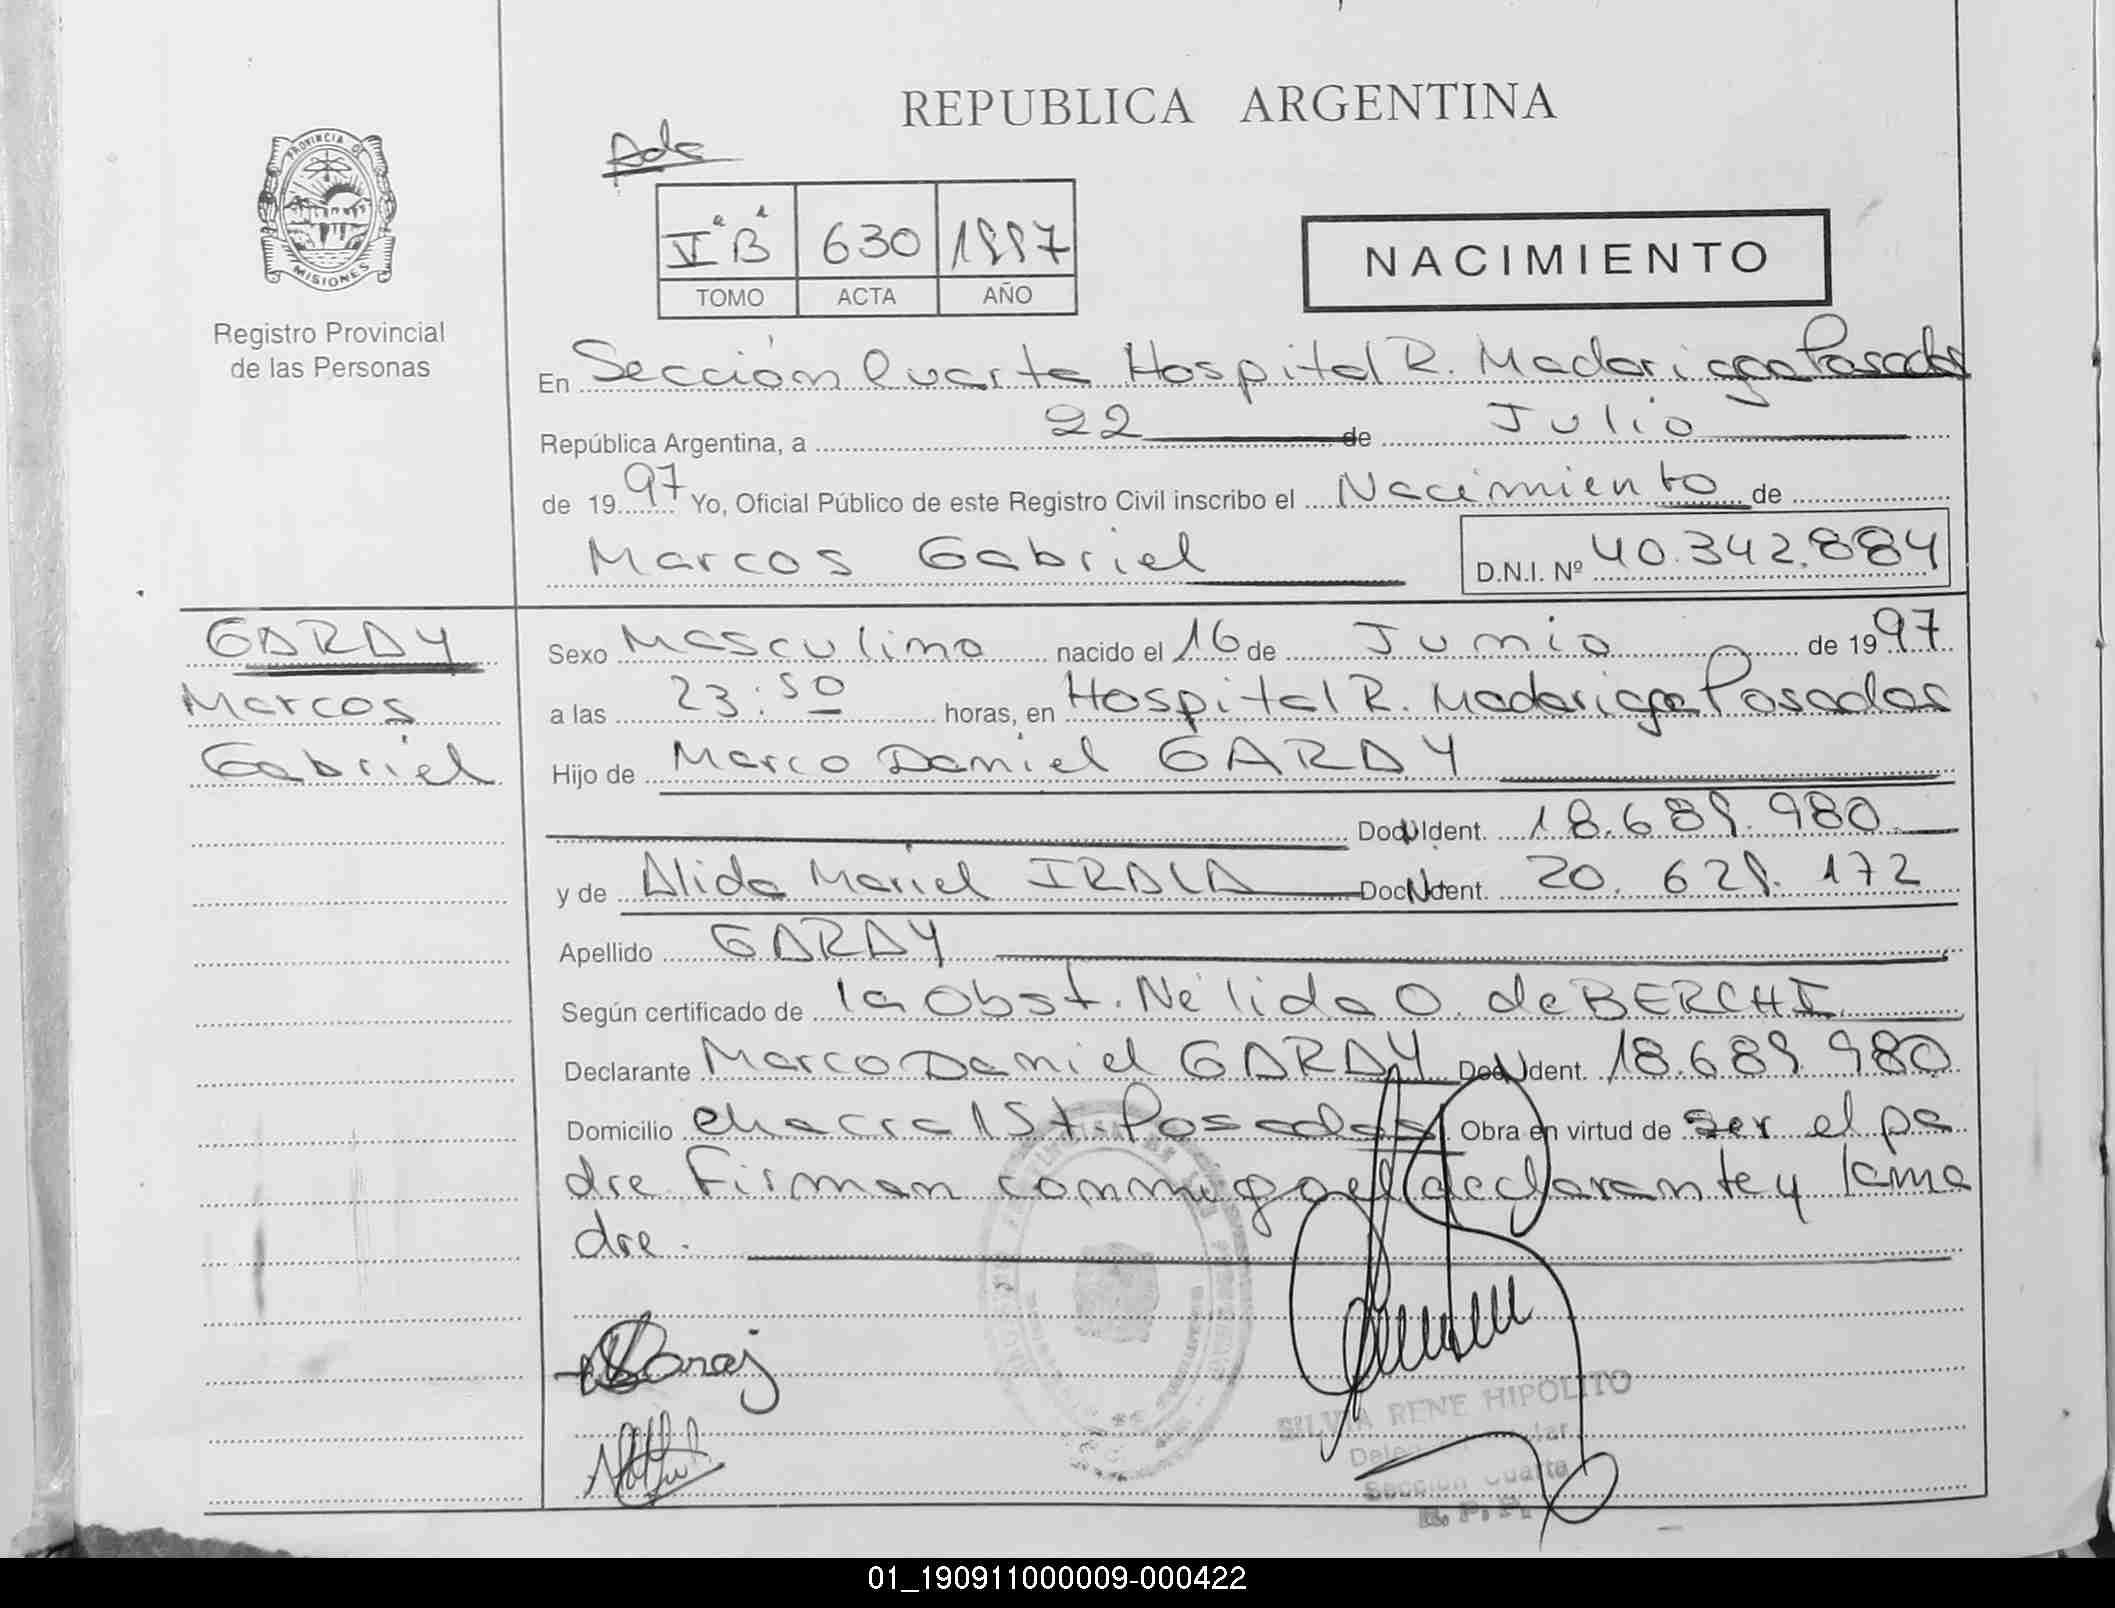 REPUBLICA ARGENTINA
PROVINCIA DE
MISIONES
Registro Provincial
de las Personas
V "B" 630 1997
TOMO ACTA AÑO
NACIMIENTO
En Sección Cuarta Hospital R. Madariaga Posadas
República Argentina, a 22 de Julio
de 1997 Yo, Oficial Público de este Registro Civil inscribo el Nacimiento de
Marcos Gabriel D.N.I. Nº 40.342.884
GARAY
Marcos
Gabriel
Sexo Masculino nacido el 16 de Junio de 1997
a las 23:50 horas, en Hospital R. Madariaga Posadas
Hijo de Marco Daniel GARAY
Doc. Ident. 18.689.980
y de Alida Mariel IRALA Doc. Ident. 20.629.172
Apellido GARAY
Según certificado de la Obst. Nélida O. de BERCHI
Declarante Marco Daniel GARAY Doc. Ident. 18.689.980
Domicilio chacra 151. Posadas Obra en virtud de ser el pa
dre. Firman conmigo el declarante y la ma
dre.
SILVIA RENE HIPOLITO
Sección Cuarta
R. P. P.
01_190911000009-000422